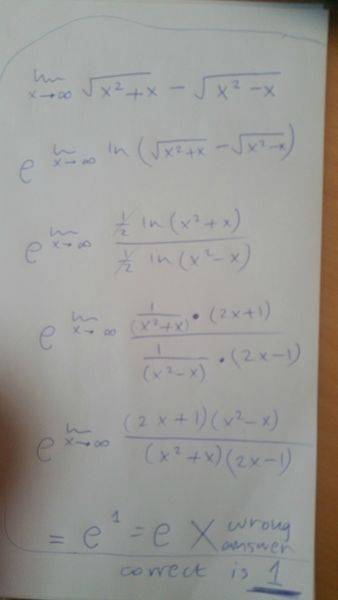 lim x→∞ √(x²+x) − √(x²−x)
e^ lim x→∞ ln(√(x²+x) − √(x²−x))
e^ lim x→∞ (½ ln(x²+x)) / (½ ln(x²−x))
e^ lim x→∞ (1/(x²+x) • (2x+1)) / (1/(x²−x) • (2x−1))
e^ lim x→∞ ((2x+1)(x²−x)) / ((x²+x)(2x−1))
= e¹ = e X wrong answer
correct is 1